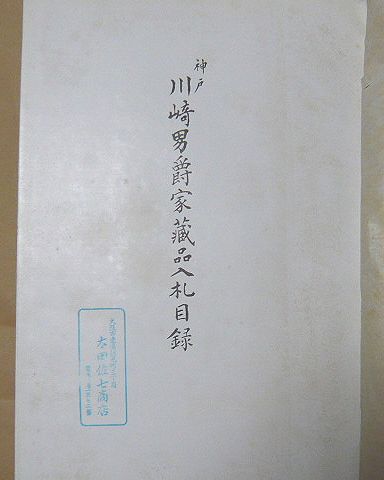 神戸
川崎男爵家藏品入札目録
太田佐七商店